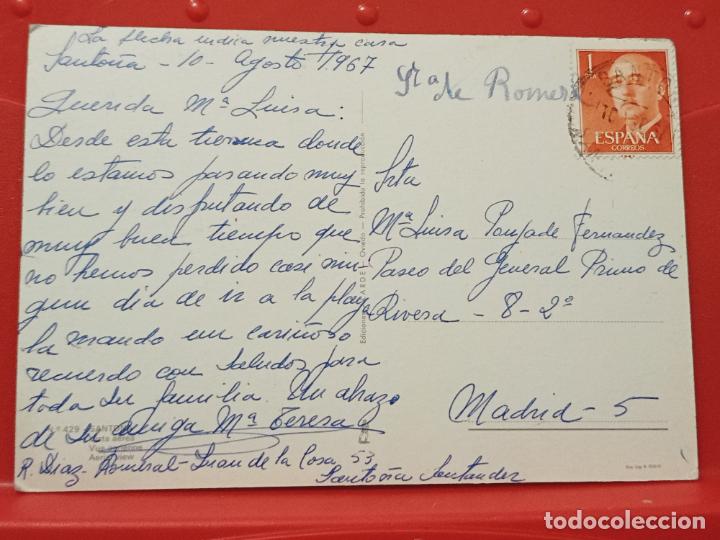 La flecha indica nuestra casa
Santoña - 10 - Agosto 1967
Querida Mª Luisa:
Desde esta tierruca donde
lo estamos pasando muy
bien y disfrutando de
muy buen tiempo que
no hemos perdido casi nin
gun dia de ir a la playa
la mando un cariñoso
recuerdo con saludos para
toda su familia. Un abrazo
de su amiga Mª Teresa
R. Diaz - Romeral - Juan de la Cosa, 53
Santoña Santander
Nº 429 SANTOÑA
Vista aérea
Aerial view
Ediciones ARDE Oviedo - Prohibida la reproducción
Srª de Romera
1
ESPAÑA
CORREOS
SANTOÑA
Srta
Mª Luisa Fernandez
Paseo del General Primo de
Rivera - 8 - 2º
Madrid - 5
todocoleccion